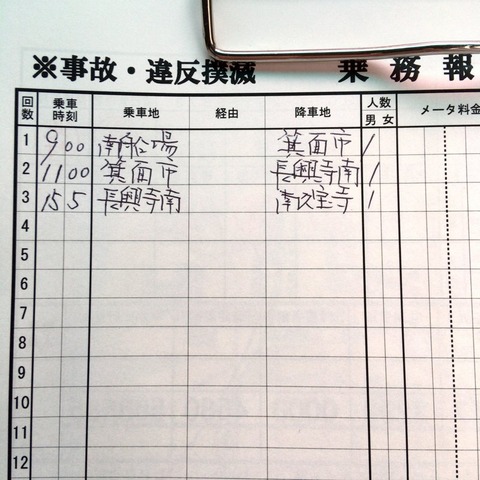 ※事故・違反撲滅 乗務報
回数 乗車時刻 乗車地 経由 降車地 人数 男 女 メータ料金
1 9 00 南船場 箕面市 1
2 11 00 箕面市 長興寺南 1
3 15 5 長興寺南 南久宝寺 1
4
5
6
7
8
9
10
11
12